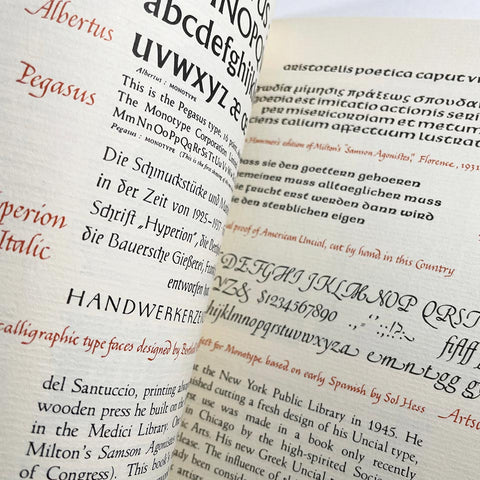 Albertus
Pegasus
Hyperion
Italic
abcdefghi
uvwxyz æ
Albertus : MONOTYPE
This is the Pegasus type, 16 point
The Monotype Corporation Limited
MmNnOoPpQqRrSsTtUuVvWw
Pegasus : MONOTYPE (This is the first showing
Die Schmuckstücke und
in der Zeit von 1925-1937
Schrift „Hyperion", die
die Bauersche Gießerei, Frank
entworfen
HANDWERKERZE
calligraphic type faces designed by
del Santuccio, printing
wooden press he built on the
in the Medici Library. On
Milton's Samson Agonistes
of Congress). This book
aristotelis poetica caput vi
τραγωδία μίμησις πράξεως σπουδαί
est imitatio actionis seri
per misericordiam et metum
talium affectuum lustrat
Hammer's edition of Milton's "Samson Agonistes," Florence, 1931
dass sie den goettern gehoeren
gemeiner muss alltaeglicher muss
die frucht erst werden dann wird
den sterblichen eigen
proof of American Uncial, cut by hand in this Country
DEFGHIJKLMNOPQRST
YZ& $1234567890
hijklmnopqrstuvwxyz
for Monotype based on early Spanish by Sol Hess
at the New York Public Library in 1945. He
finished cutting a fresh design of his Uncial type,
use was made in a book only recently
in Chicago by the high-spirited Society
Arts. His new Greek Uncial type
release. The influence of the
already been considered